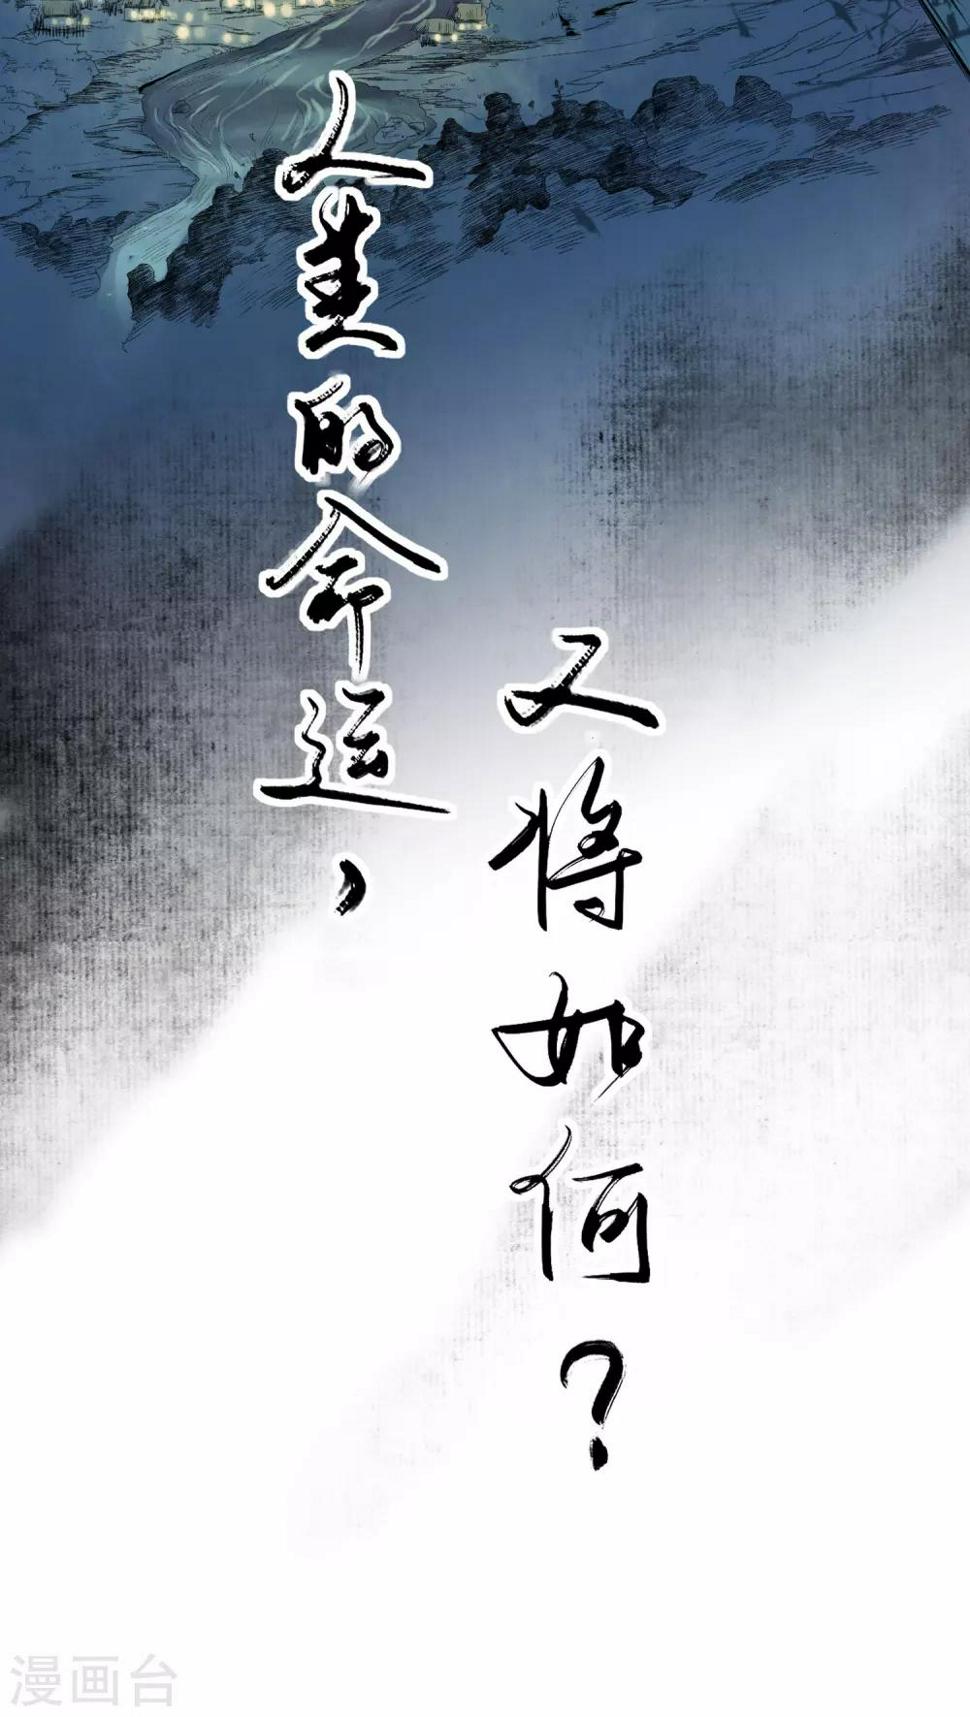 人生的命运，
又将如何？
漫画台